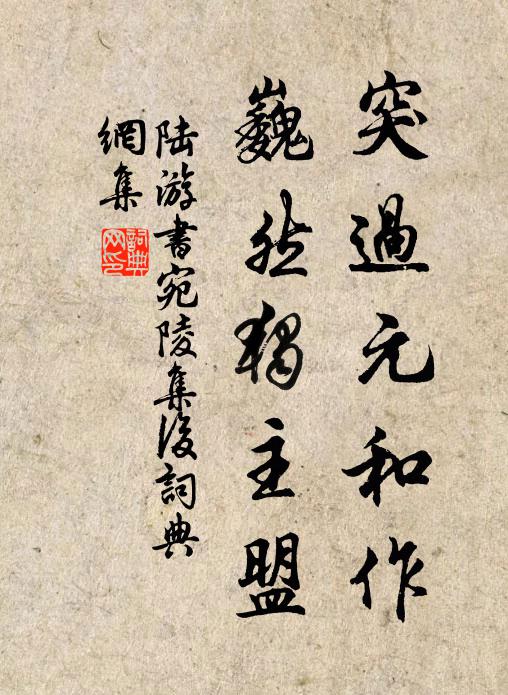 突過元和作
巍然獨主盟
陸游書宛陵集後詞典
網集
詞典
网印